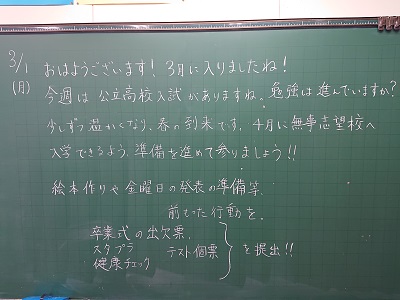 3/1 おはようございます! 3月に入りましたね!
(月) 今週は公立高校入試がありますね。勉強は進んでいますか?
少しずつ温かくなり、春の到来です。4月に無事志望校へ
入学できるよう、準備を進めて参りましょう!!
絵本作りや金曜日の発表の準備等、
前もった行動を。
卒業式の出欠票、
スタプラ テスト個票 を提出!!
健康チェック